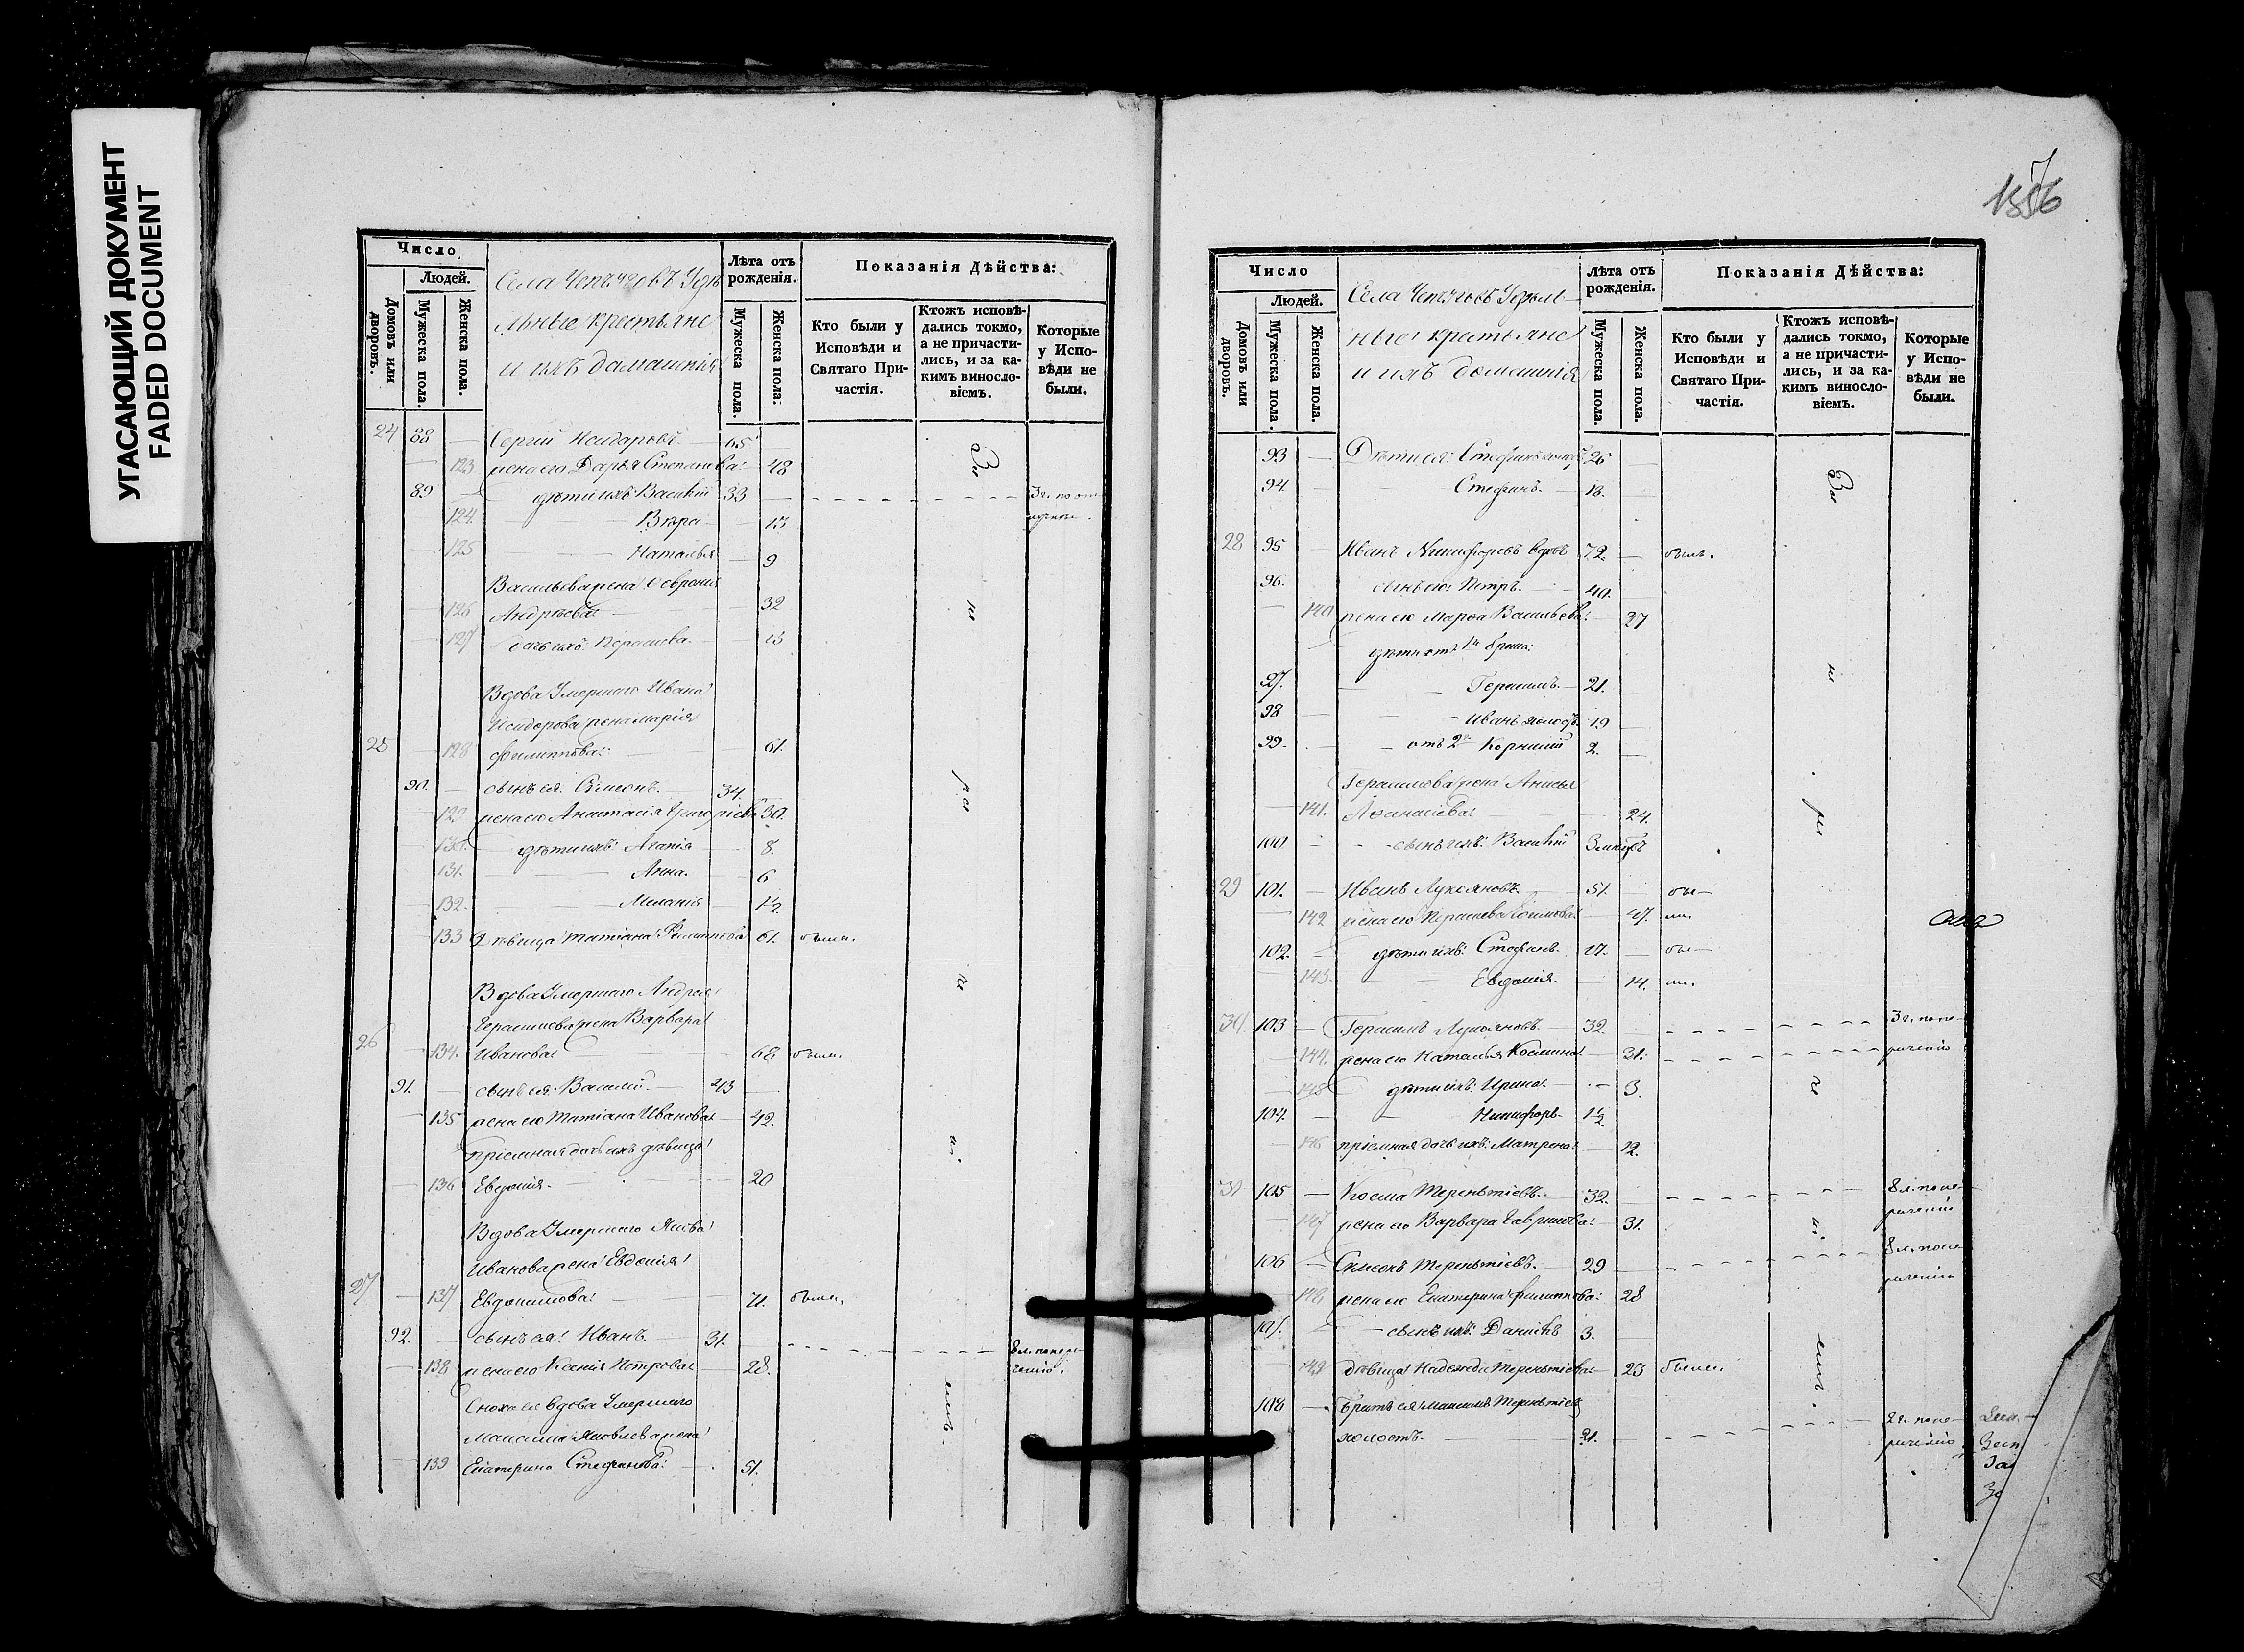 УГАСАЮЩИЙ ДОКУМЕНТ
FADED DOCUMENT
Число
Людей.
Домовъ или дворовъ.
Мужеска пола.
Женска пола.
Села Чепчуговъ Удѣ
льные крестьяне
и ихъ домашнія
Лѣта отъ рожденія.
Мужеска пола.
Женска пола:
Показанія Дѣйства:
Кто были у Исповѣди и Святаго Причастія.
Ктожъ исповѣдались токмо, а не причастились, и за какимъ винословіемъ.
Которые у Исповѣди не были.
24 88 — Сергій Исидоровъ. 65 —
— 123 жена его Дарья Степанова: — 48
89 — дѣти ихъ: Василій 33 — 3 г. по от
124. Вѣра — 13
лучке.
— 125 Наталья — 9
Васильева жена Феврония
— 126 Андреева: 32
— 127 дочь ихъ: Парасковa. 13
Вдова Умершаго Ивана
Исидорова жена Марія
25 — 128 Филиппова: 61.
90. — сынъ ея: Симеонъ. 34.
— 129 жена его Анастасія Григоріева 30.
— 130. дѣти ихъ: Агапія 8.
131. Анна. 6
— 132. Меланія 1½
133 Дѣвица Татіана Филиппова 61. была.
Вдова Умершаго Андрея
Герасимова жена Варвара
26 — 134. Иванова 68 была.
91. — сынъ ея: Василій. 43 —
— 135 жена его Татіана Иванова: — 42.
Пріемная дочь ихъ дѣвица
— 136 Евдокія. 20
Вдова Умершаго Якова
Иванова жена Евдокія
27 — 137 Евдокимова: 71. была,
92. — сынъ ея: Иванъ. 31. — 8 л. по нера
— 138 жена его Ксенія Петрова: 28.
чению.
Сноха ея вдова Умершаго
Максима Яковлева жена
— 139 Екатерина Стефанова: 51.
Число
Людей.
Домовъ или дворовъ.
Мужеска пола.
Женска пола.
Села Чепчуговъ Удѣль
ные крестьяне
и ихъ домашнія
Лѣта отъ рожденія.
Мужеска пола.
Женска пола.
Показанія Дѣйства:
Кто были у Исповѣди и Святаго Причастія.
Ктожъ исповѣдались токмо, а не причастились, и за какимъ винословіемъ.
Которые у Исповѣди не были.
93 — Дѣти ея: Стефанъ холос 26 —
94. Стефанъ. 18. —
28 95 — Иванъ Никифоровъ вдовъ 72 — былъ.
96. сынъ его: Петръ. 40.
— 140 жена его Марѳа Васильева: 37
дѣти отъ 1го брака:
97. — Герасимъ. 21.
98 — Иванъ холос. 19 —
99. — отъ 2го Корнилій 2. —
Герасимова жена Анисья
— 141. Аѳанасіева: 24.
100 — сынъ ихъ: Василій 3 мѣсяцъ
29 101. — Иванъ Лукояновъ. 51. бы—
— 142 жена его Парасковa 47. ли.
102. — дѣти ихъ: Стефанъ. 17. — бы—
— 143. — Евдокія. 14. ли.
30 103 — Герасимъ Лукояновъ. 32. 3 г. по не
— 144. жена его Наталья Космина: — 31.
раченію
— 145 дѣти ихъ: Ирина. — 3.
104. — Никифоръ. 1½
— 146 пріемная дочь ихъ: Матрена: — 12.
31 105 — Косма Терентіевъ. 32. 8 л. по не
раченію
— 147 жена его Варвара Гаврилова: 31.
106 — Симеонъ Терентіевъ. 29 — 8 л. по не
раченію
— 148 жена его Екатерина Филиппова: 28
107. — сынъ ихъ: Даніилъ 3. —
— 149 дѣвица Надежда Терентіева: 25 была.
108 — Братъ ея Максимъ Терентіевъ
холостъ. 21. 2 г. по не
раченію